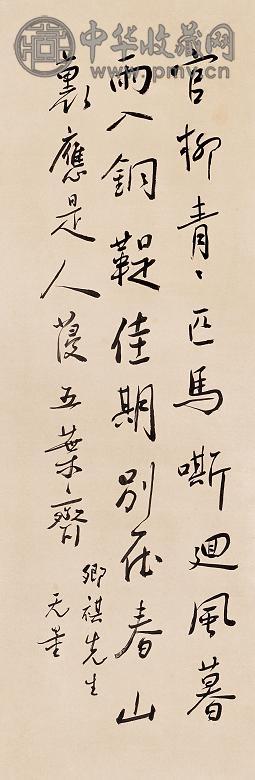 中华收藏网
www.pmyv.cn
官柳青〻匹馬嘶迴風暮
雨入銅鞮佳期別在春山
裏應是人薓五葉齊
鄉祺先生
无量